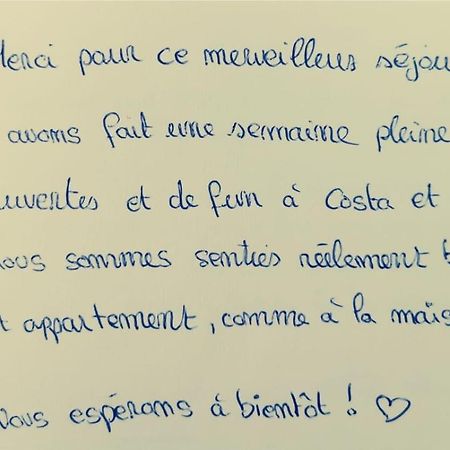 Merci pour ce merveilleus séjou
avons fait une semaine pleine
uvertes et de fun à Costa et
nous sommes senties réelement b
t appartement, comme à la mais
Nous espérons à bientôt ! ♡